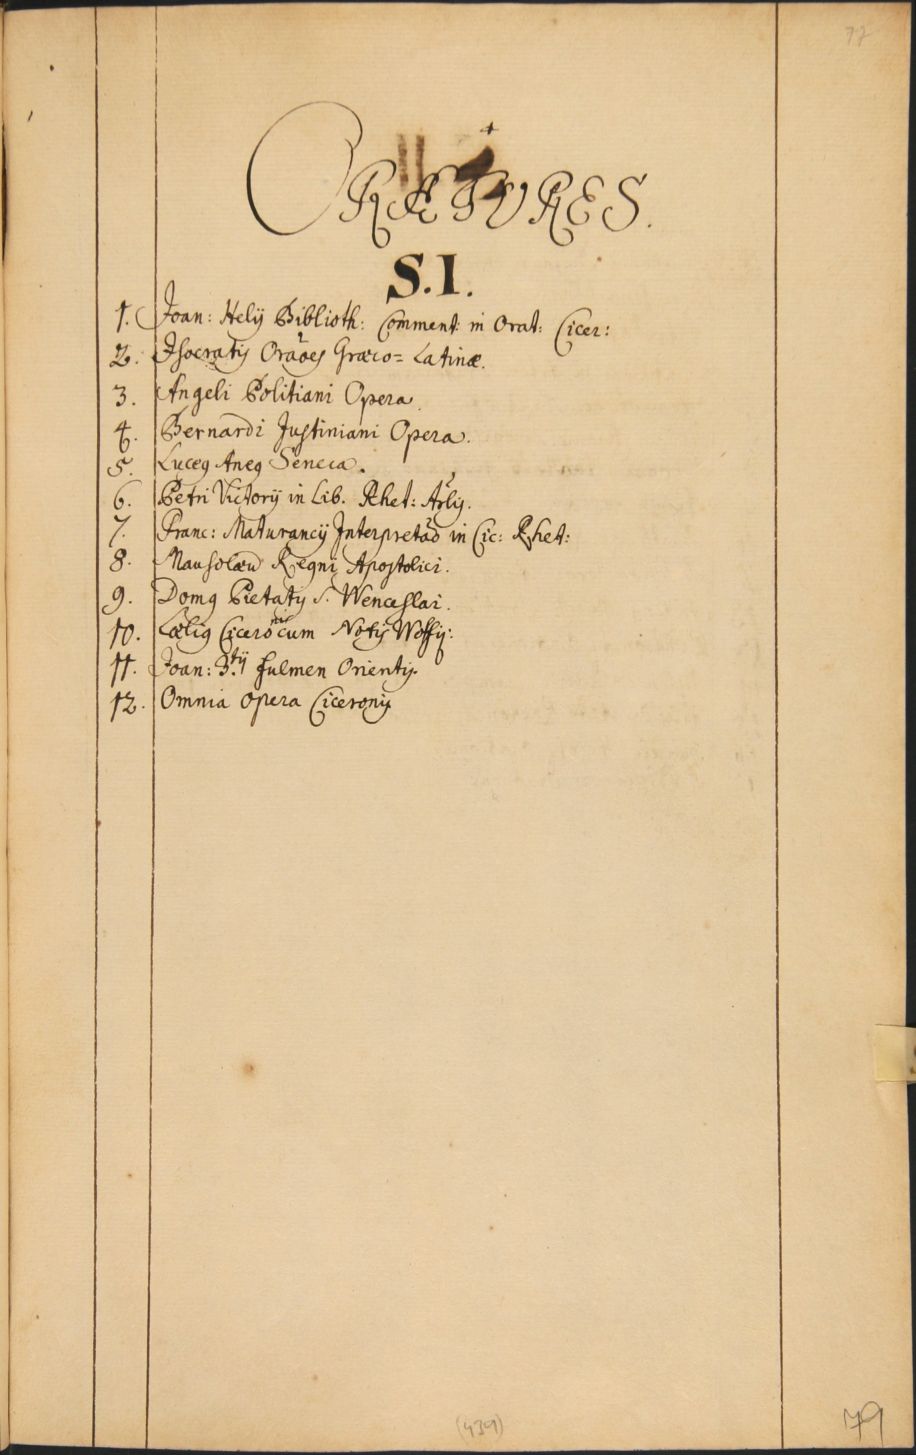 77
ORATORES.
S.I.
1. Joan: Helij Biblioth: Comment: in Orat: Cicer:
2. Isocratis Orãoes Græco= Latinæ.
3. Angeli Politiani Opera.
4. Bernardi Justiniani Opera.
5. Luceq Aneq Seneca.
6. Petri Victorij in Lib. Rhet: Arlis.
7. Franc: Maturancij Interpretaõ in Cic: Rhet:
8. Mausolæu Regni Apostolici.
9. Domq Pietatis S. Wenceslai.
10. Læliq Cicerõ cum Notis Wolfij:
11. Joan: B.tij fulmen Orientis.
12. Omnia Opera Ciceronis
(439)
79